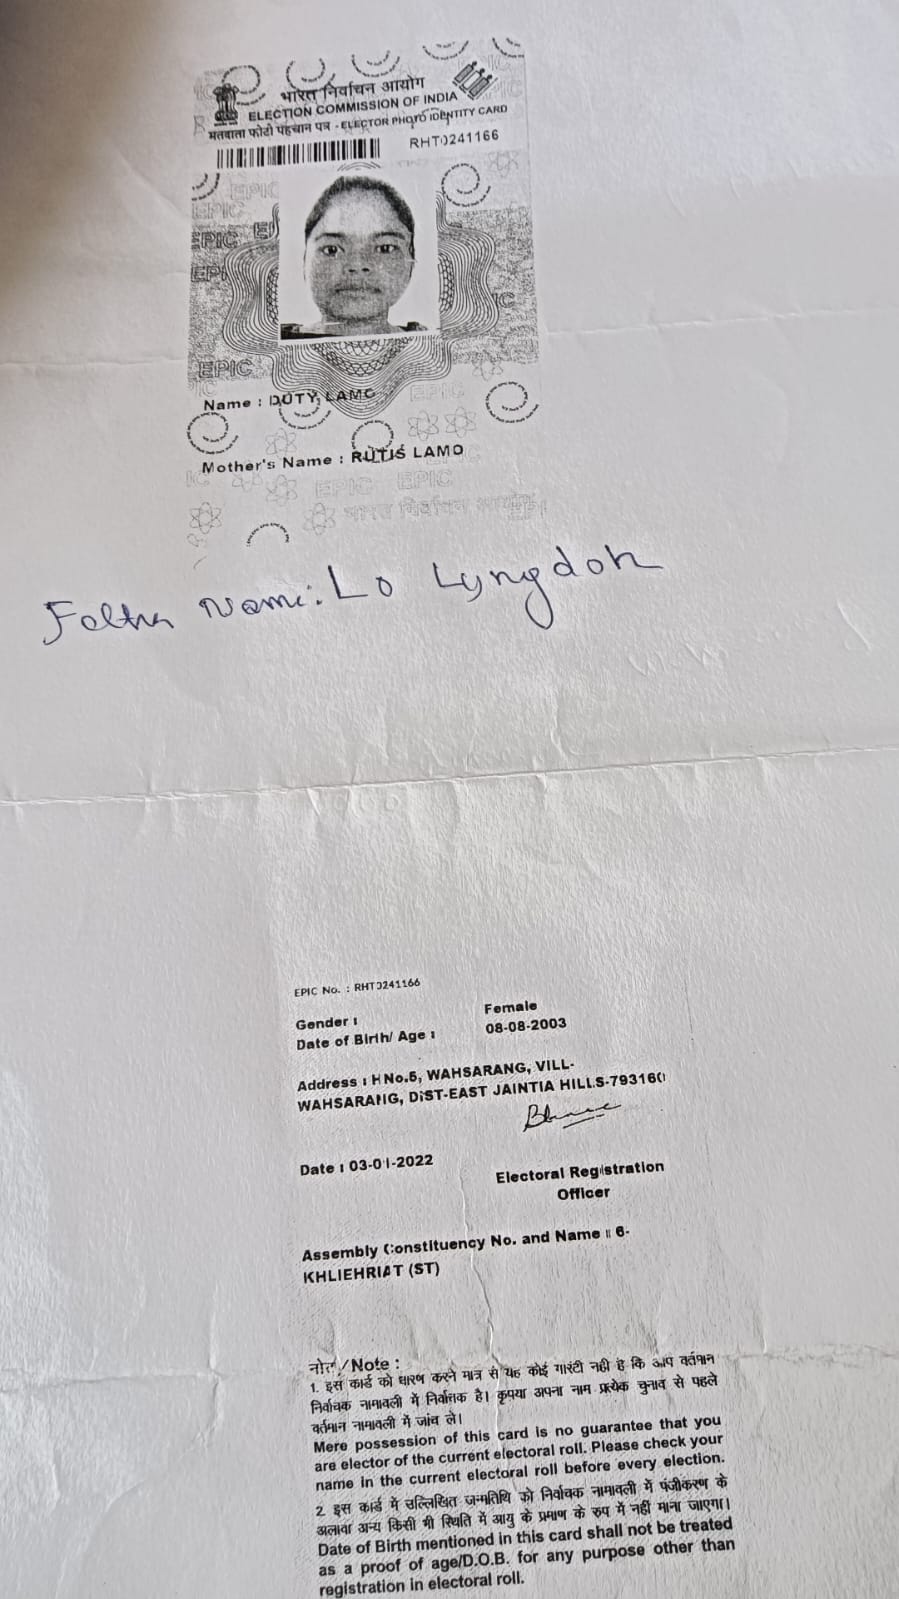 भारत निर्वाचन आयोग
ELECTION COMMISSION OF INDIA
मतदाता फोटो पहचान पत्र - ELECTOR PHOTO IDENTITY CARD
RHT0241166
EPIC
EPIC
EPIC
EPIC
Name : DUTY LAMO
Mother's Name : RUTIS LAMO
EPIC EPIC
भारत निर्वाचन आयोग
Name: Lo Lyngdoh
EPIC No. : RHT0241166
Gender : Female
Date of Birth/ Age : 08-08-2003
Address : H No.5, WAHSARANG, VILL-
WAHSARANG, DIST-EAST JAINTIA HILLS-793160
Date : 03-01-2022
Electoral Registration
Officer
Assembly Constituency No. and Name : 6-
KHLIEHRIAT (ST)
नोट / Note :
1. इस कार्ड को धारण करने मात्र से यह कोई गारंटी नही है कि आप वर्तमान
निर्वाचक नामावली में निर्वाचक है। कृपया अपना नाम प्रत्येक चुनाव से पहले
वर्तमान नामावली में जांच ले।
Mere possession of this card is no guarantee that you
are elector of the current electoral roll. Please check your
name in the current electoral roll before every election.
2 इस कार्ड में उल्लिखित जन्मतिथि को निर्वाचक नामावली में पंजीकरण के
अलावा अन्य किसी भी स्थिति में आयु के प्रमाण के रुप में नहीं माना जाएगा।
Date of Birth mentioned in this card shall not be treated
as a proof of age/D.O.B. for any purpose other than
registration in electoral roll.